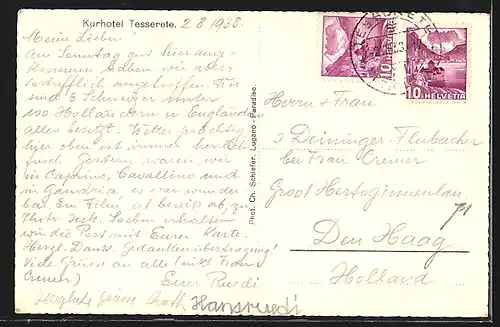 Kurhotel Tesserete. 2 8 1938.
Meine Lieben!
Am Sonntag gut hier ange-
kommen & haben wir alles
vortrefflich angetroffen. Wir
sind 6 Schweizer unter
100 Holländern u Engländern
alles besetzt. Wetter prächtig
hier oben ist immer
frisch Gestern waren wir
in Caprino, Cavallino und
in Gandria es war wunder
bar. Ein Film ist bereits ab, zu
Soeben erhalten
wir die Post mit Eurer Karte.
Herzl. Dank. Gedankenübertragung!
Viele Grüsse an alle (inkl Frau
Cremer) Euer Ruedi
Herzliche Grüsse
Hansruedi
Phot. Ch. Schiefer, Lugano-Paradiso.
10 HELVETIA
10 HELVETIA
Herrn & Frau
Deininger-Flubacher
bei Frau Cremer
Groot Hertoginnenlaan
71
Den Haag
Holland